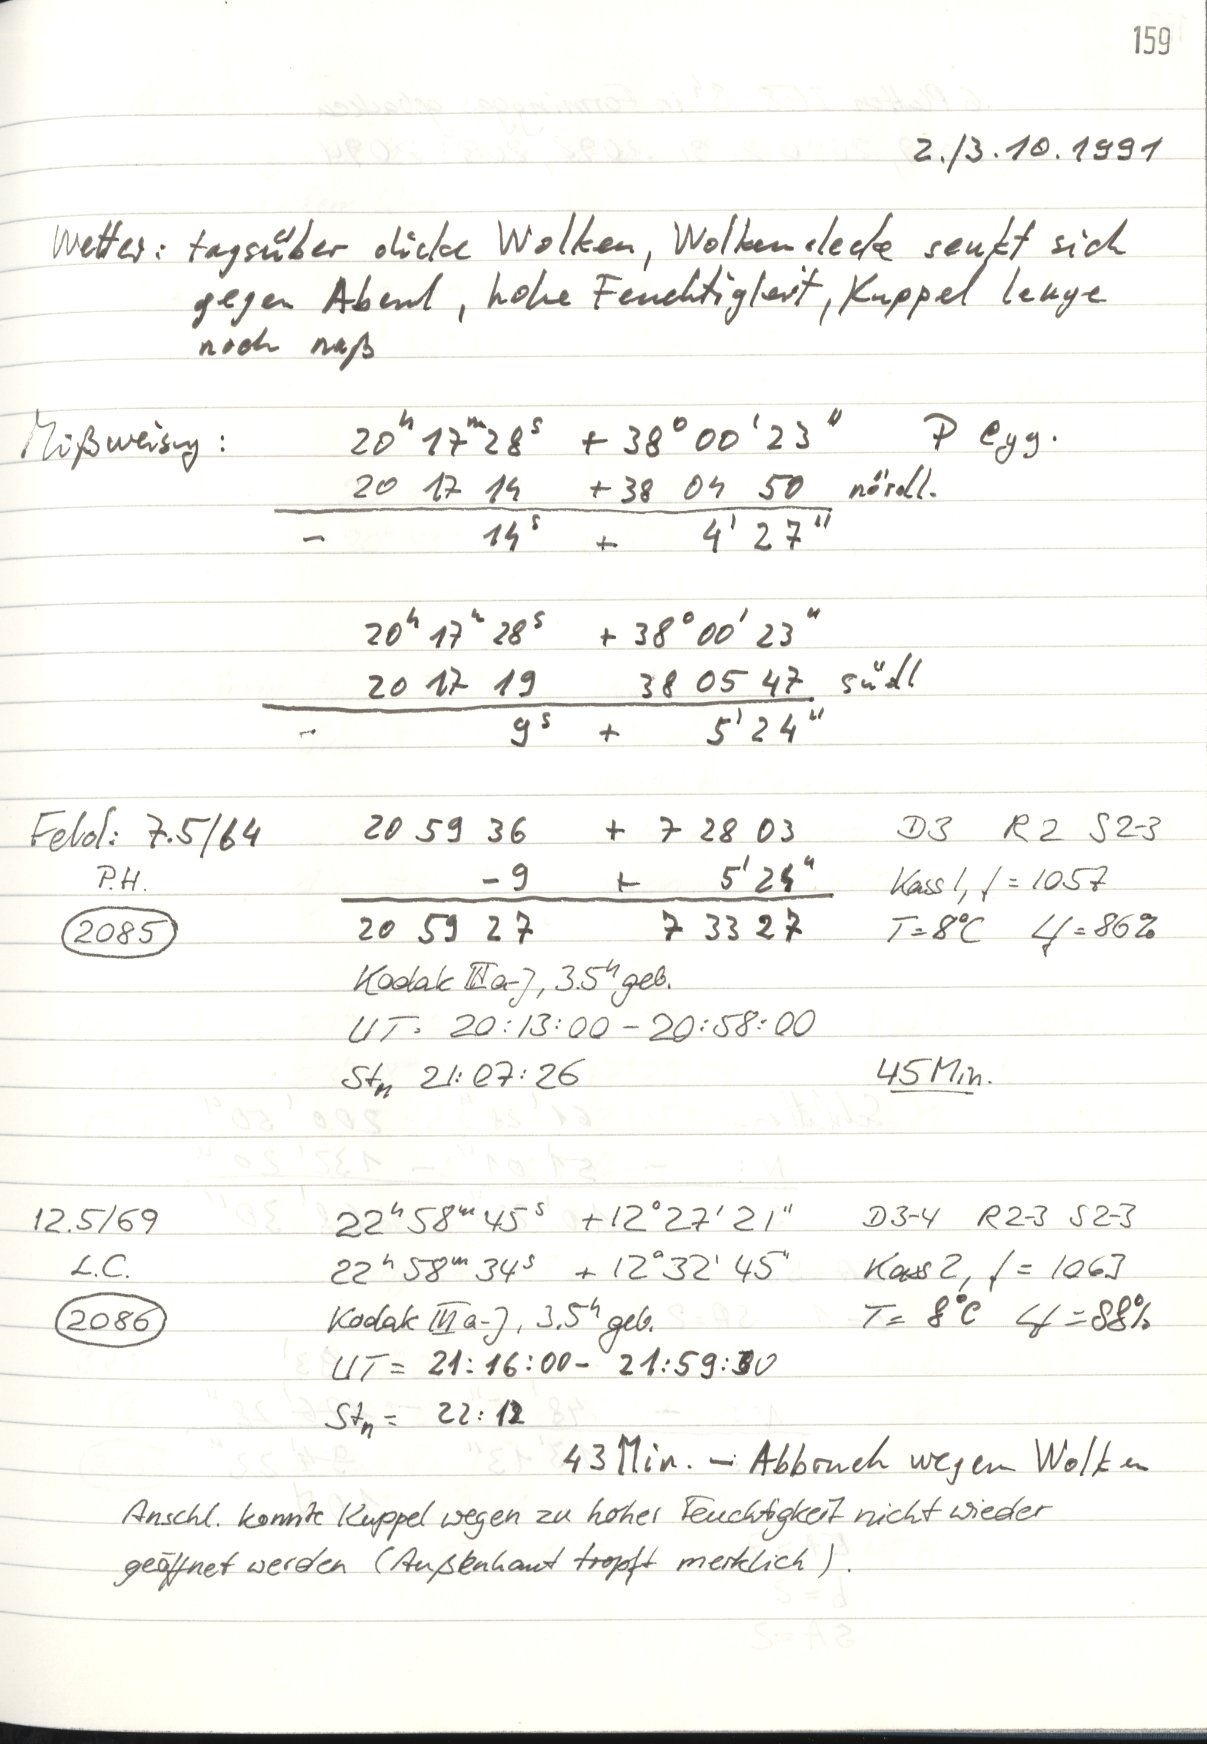 159
2./3.10.1991
Wetter: tagsüber dicke Wolken, Wolkendecke senkt sich
gegen Abend, hohe Feuchtigkeit, Kuppel lange
noch naß
Mißweisung: 20h 17m 28s + 38° 00' 23" P Cyg.
20 17 14 + 38 04 50 nördl.
- 14s + 4' 27"
20h 17m 28s + 38° 00' 23"
20 17 19 38 05 47 südl
- 9s + 5' 24"
Feld: 7.5/64 20 59 36 + 7 28 03 D3 R2 S2-3
P.H. -9 + 5' 24" Kass 1, f = 1057
2085 20 59 27 7 33 27 T = 8°C φ = 86%
Kodak IIIa-J, 3.5h geb.
UT: 20:13:00 - 20:58:00
Stn 21:07:26 45 Min.
12.5/69 22h 58m 45s + 12° 27' 21" D3-4 R2-3 S2-3
L.C. 22h 58m 34s + 12° 32' 45" Kass 2, f = 1063
2086 Kodak IIIa-J, 3.5h geb. T = 8°C φ = 88%
UT = 21:16:00 - 21:59:30
Stn = 22:12
43 Min. - Abbruch wegen Wolken
Anschl. konnte Kuppel wegen zu hoher Feuchtigkeit nicht wieder
geöffnet werden (Außenhaut tropft merklich).